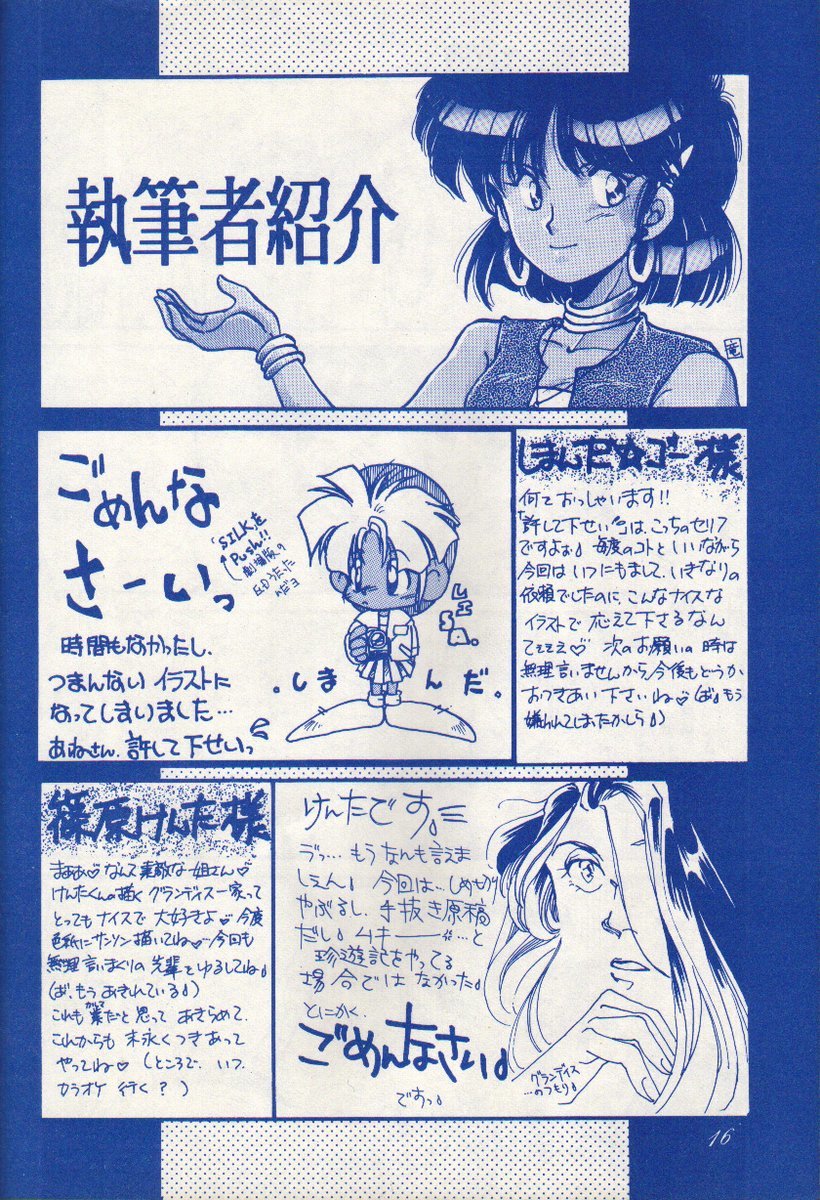 執筆者紹介
竜
ごめんな
さーいっ
「SILKを
Push!!」
劇場版の
EDうたった
んだヨ
時間もなかったし、
つまんない イラストに
なってしまいました…
あねさん、許して下せいっ
.しまんだ。
しまんだ☆ゴー様
何ておっしゃいます!!
「許して下せい」は、こっちのセリフ
ですよぉ♪ 毎度のコトといいながら
今回は いつにもまして、いきなりの
依頼でしたのに こんなナイスな
イラストで 応えて下さるなんて
てぇぇぇ♡ 次のお願いの時は
無理言いませんから、今後もどうか
おつきあい下さいね♡(ば♪もう
嫌われてしまったかしら♪)
篠原けんた様
まぁぁ♡なんて素敵な姐さん♡
けんたくんの描く グランディス一家って
とってもナイスで 大好きよ♡ 今度
色紙にサンソン描いてね♡…今回も
無理言いまくりの 先輩をゆるしてね♪
(ば、もう あきれている♪)
これも業だと思って あきらめて、
これからも 末永くつきあって
やってね♡(ところで、いつ、
カラオケ 行く?)
けんたです。
うっ… もう なんも言えま
しぇん♪ 今回は… しめきり
やぶるし、手抜き原稿
だし♪ ムキーー…と
珍遊記をやってる
場合では なかった♪
とにかく、
ごめんなさい♪
ですっ♪
グランディス
…のつもり♪
16